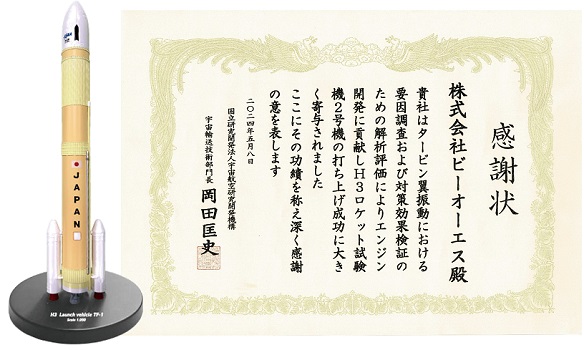 感謝状
株式会社ビーオーエス殿
貴社はタービン翼振動における
要因調査および対策効果検証の
ための解析評価によりエンジン
開発に貢献しH3ロケット試験
機2号機の打ち上げ成功に大き
く寄与されました
ここにその功績を称え深く感謝
の意を表します
二〇二四年五月八日
国立研究開発法人宇宙航空研究開発機構
宇宙輸送技術部門長 岡田匡史
JAPAN
H3 Launch vehicle TF-1